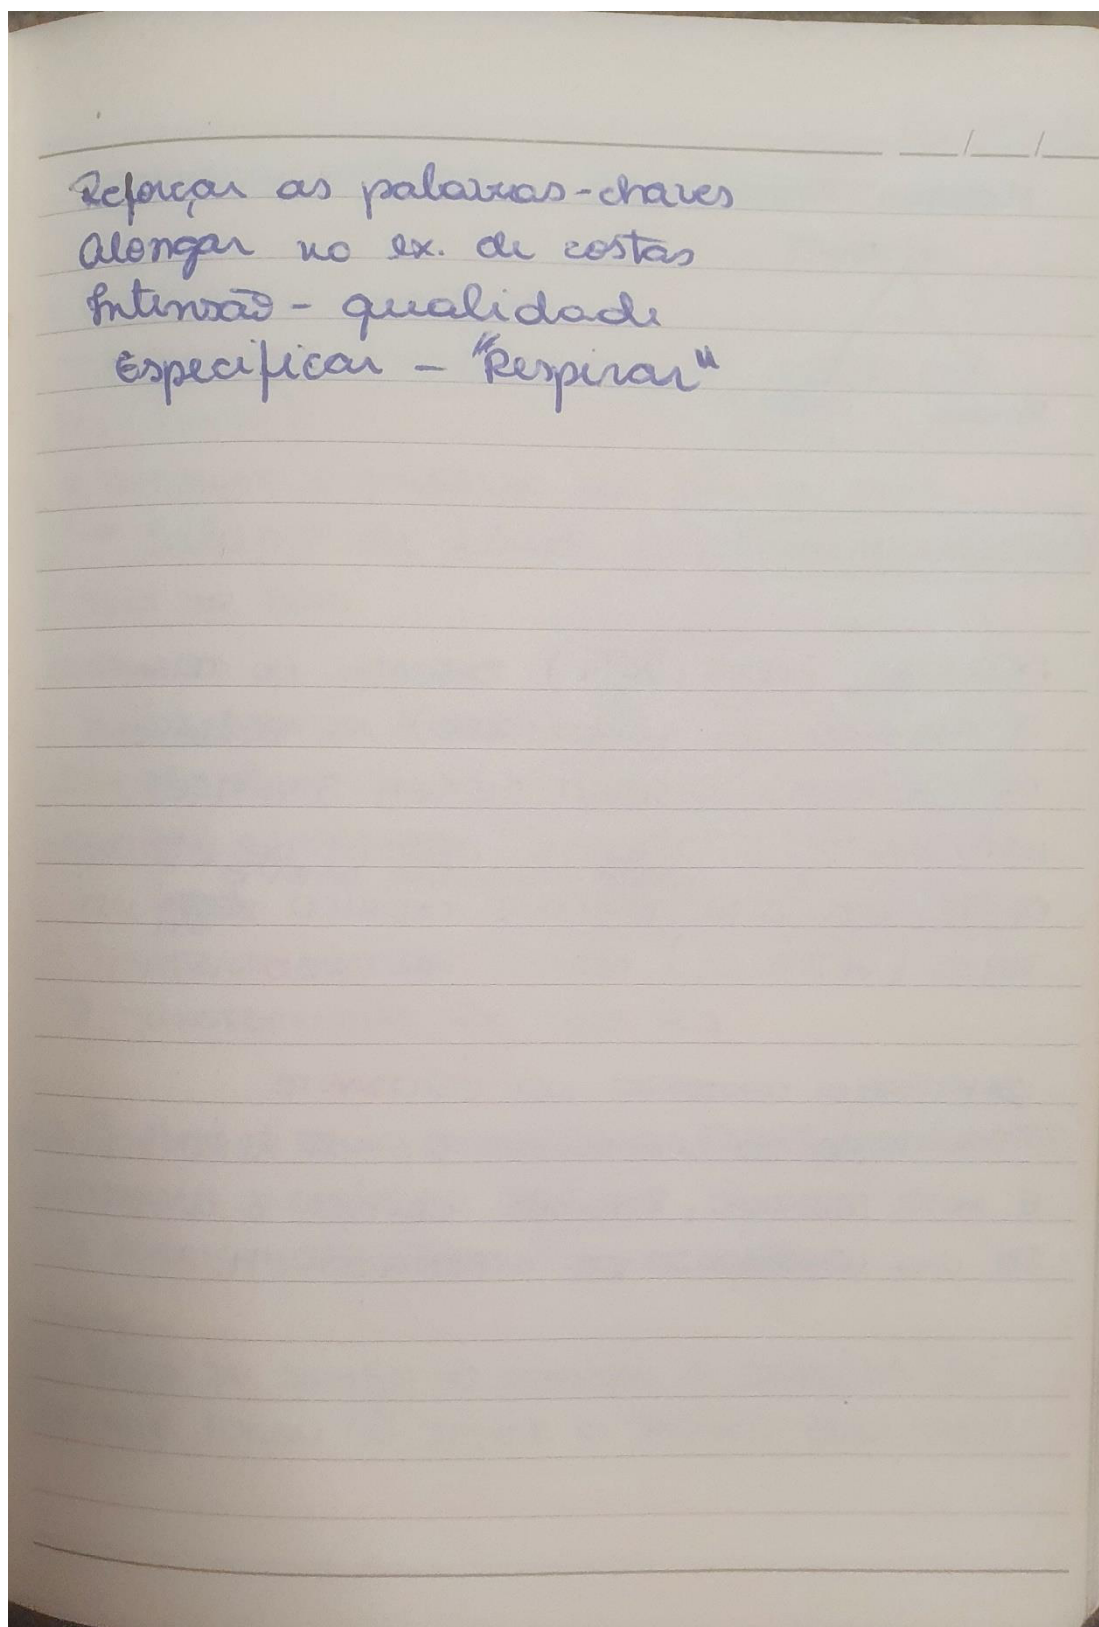 Reforçar as palavras-chaves
Alongar no ex. de costas
Intensão - qualidade
Especificar - "Respirar"